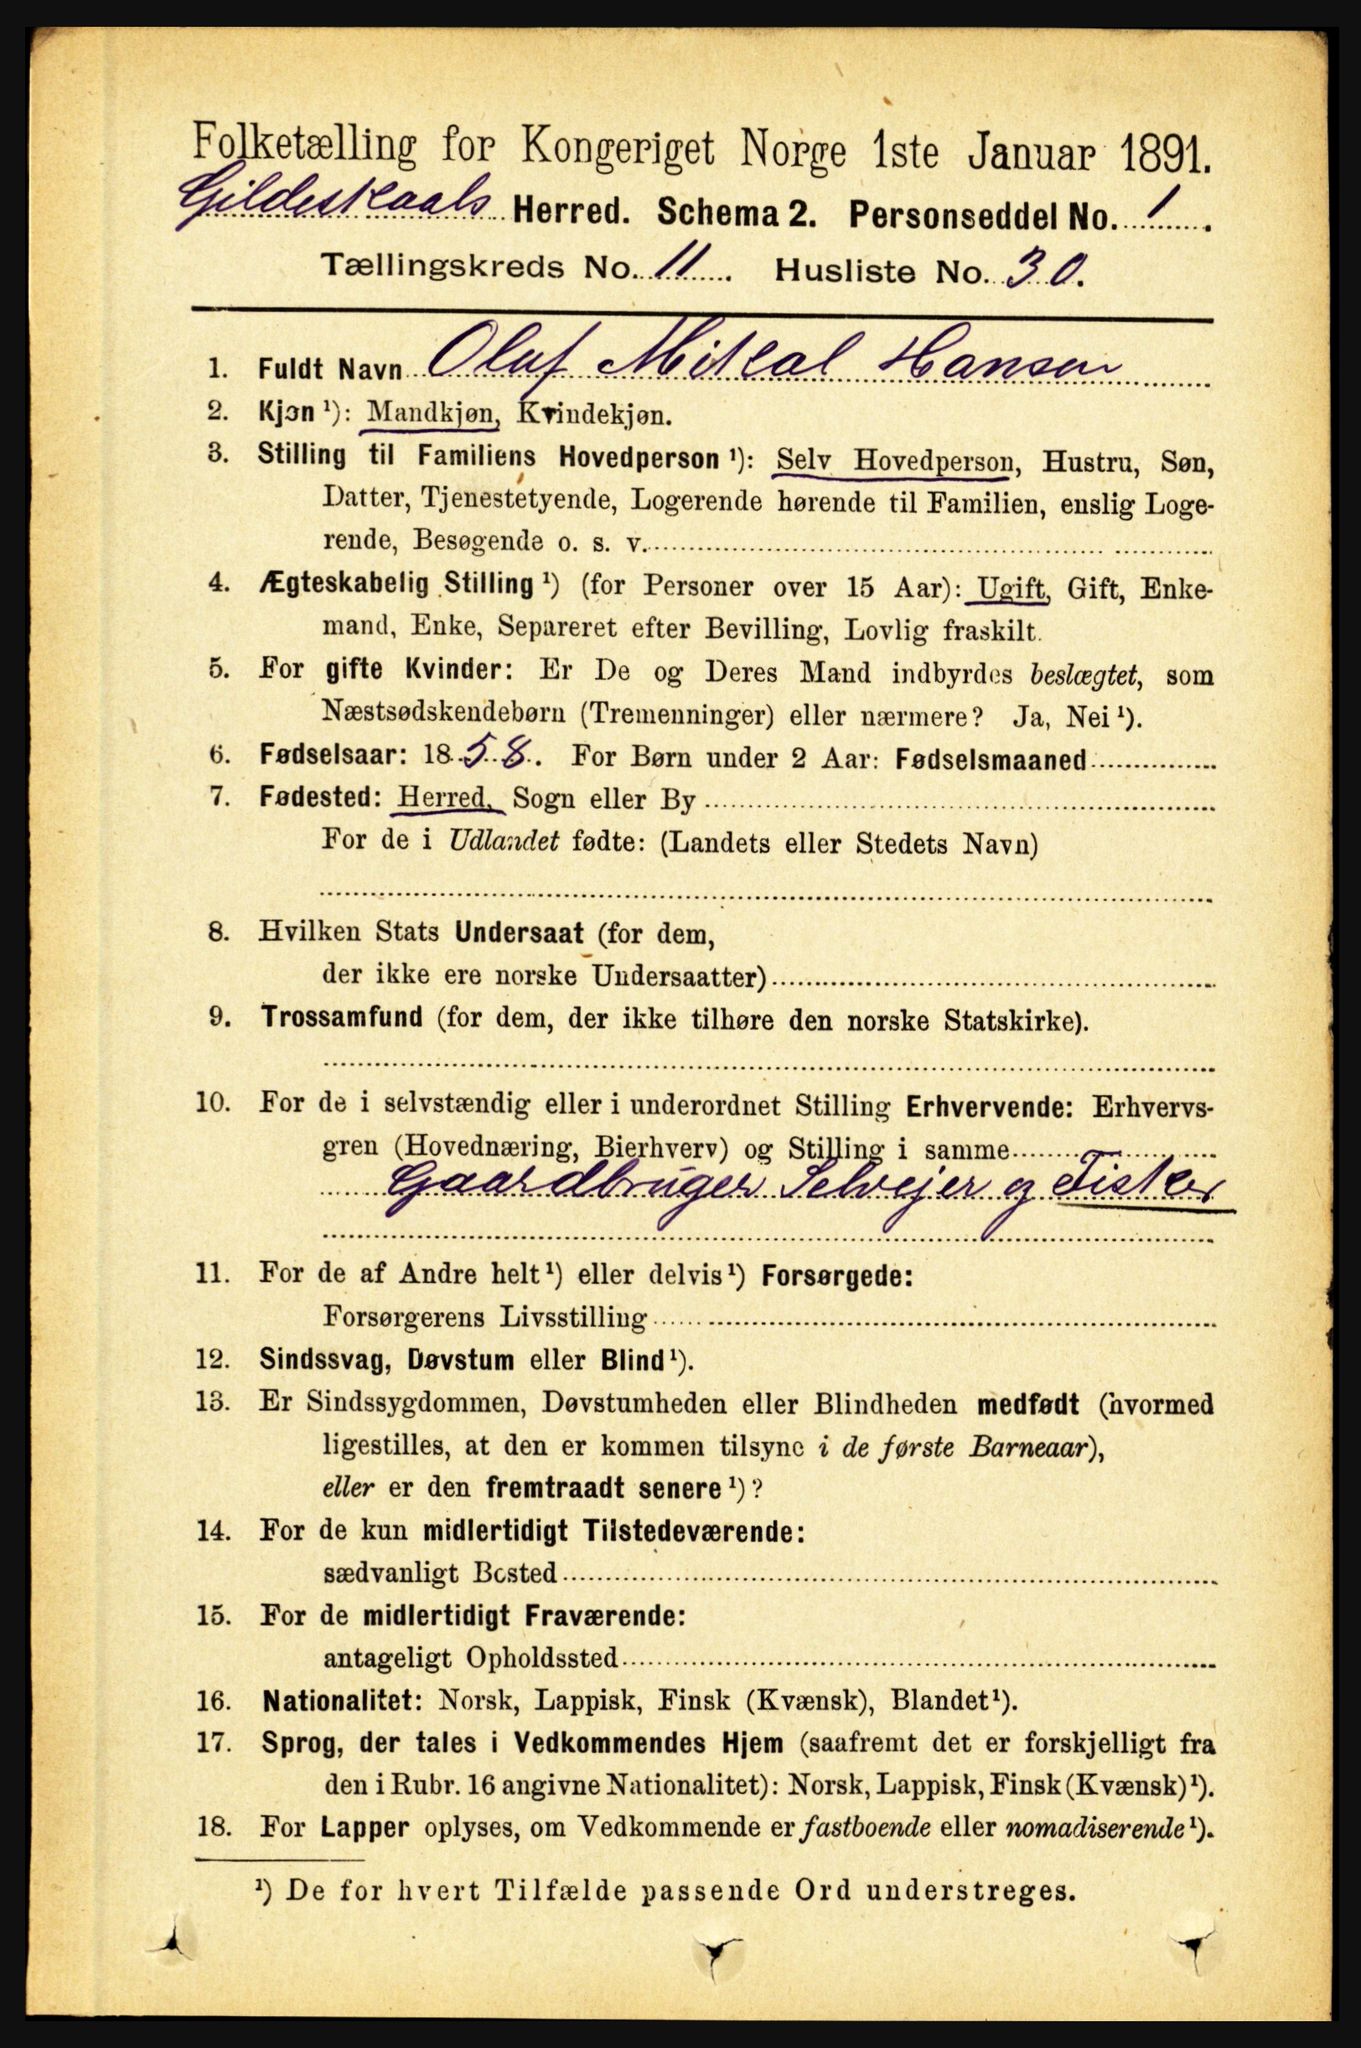 Folketælling for Kongeriget Norge 1ste Januar 1891.
Gildeskaals Herred. Schema 2. Personseddel No. 1.
Tællingskreds No. 11. Husliste No. 30.
1. Fuldt Navn Oluf Mikal Hansen
2. Kjøn ¹): Mandkjøn, Kvindekjøn.
3. Stilling til Familiens Hovedperson ¹): Selv Hovedperson, Hustru, Søn,
Datter, Tjenestetyende, Logerende hørende til Familien, enslig Loge-
rende, Besøgende o. s. v.
4. Ægteskabelig Stilling ¹) (for Personer over 15 Aar): Ugift, Gift, Enke-
mand, Enke, Separeret efter Bevilling, Lovlig fraskilt.
5. For gifte Kvinder: Er De og Deres Mand indbyrdes beslægtet, som
Næstsødskendebørn (Tremenninger) eller nærmere? Ja, Nei ¹).
6. Fødselsaar: 1858. For Børn under 2 Aar: Fødselsmaaned
7. Fødested: Herred, Sogn eller By
For de i Udlandet fødte: (Landets eller Stedets Navn)
8. Hvilken Stats Undersaat (for dem,
der ikke ere norske Undersaatter)
9. Trossamfund (for dem, der ikke tilhøre den norske Statskirke).
10. For de i selvstændig eller i underordnet Stilling Erhvervende: Erhvervs-
gren (Hovednæring, Bierhverv) og Stilling i samme
Gaardbruger Selvejer og Fisker
11. For de af Andre helt ¹) eller delvis ¹) Forsørgede:
Forsørgerens Livsstilling
12. Sindssvag, Døvstum eller Blind ¹).
13. Er Sindssygdommen, Døvstumheden eller Blindheden medfødt (hvormed
ligestilles, at den er kommen tilsyne i de første Barneaar),
eller er den fremtraadt senere ¹)?
14. For de kun midlertidigt Tilstedeværende:
sædvanligt Bosted
15. For de midlertidigt Fraværende:
antageligt Opholdssted
16. Nationalitet: Norsk, Lappisk, Finsk (Kvænsk), Blandet ¹).
17. Sprog, der tales i Vedkommendes Hjem (saafremt det er forskjelligt fra
den i Rubr. 16 angivne Nationalitet): Norsk, Lappisk, Finsk (Kvænsk) ¹).
18. For Lapper oplyses, om Vedkommende er fastboende eller nomadiserende ¹).
¹) De for hvert Tilfælde passende Ord understreges.